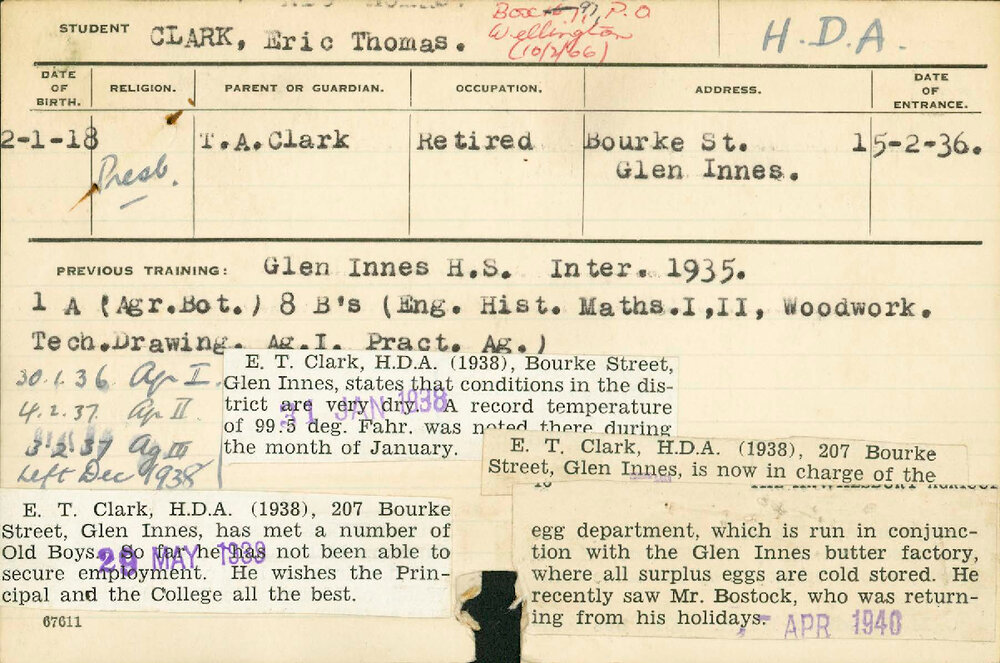 STUDENT CLARK, Eric Thomas.
Box 91, P.O
Wellington
(10/2/66)
H.D.A.
DATE OF BIRTH.
RELIGION.
PARENT OR GUARDIAN.
OCCUPATION.
ADDRESS.
DATE OF ENTRANCE.
2-1-18
Presb.
T.A.Clark
Retired
Bourke St.
Glen Innes.
15-2-36.
PREVIOUS TRAINING: Glen Innes H.S. Inter. 1935.
1 A (Agr.Bot.) 8 B's (Eng. Hist. Maths.I,II, Woodwork.
Tech.Drawing. Ag.I. Pract. Ag.)
30.1.36 Ag I.
4.2.37. Ag II.
3.2.37 Ag III
Left Dec 1938
E. T. Clark, H.D.A. (1938), Bourke Street,
Glen Innes, states that conditions in the dis-
trict are very dry. A record temperature
of 99.5 deg. Fahr. was noted there during
the month of January.
31 JAN 1938
E. T. Clark, H.D.A. (1938), 207 Bourke
Street, Glen Innes, has met a number of
Old Boys. So far he has not been able to
secure employment. He wishes the Prin-
cipal and the College all the best.
29 MAY 1939
67611
E. T. Clark, H.D.A. (1938), 207 Bourke
Street, Glen Innes, is now in charge of the
egg department, which is run in conjunc-
tion with the Glen Innes butter factory,
where all surplus eggs are cold stored. He
recently saw Mr. Bostock, who was return-
ing from his holidays.
APR 1940